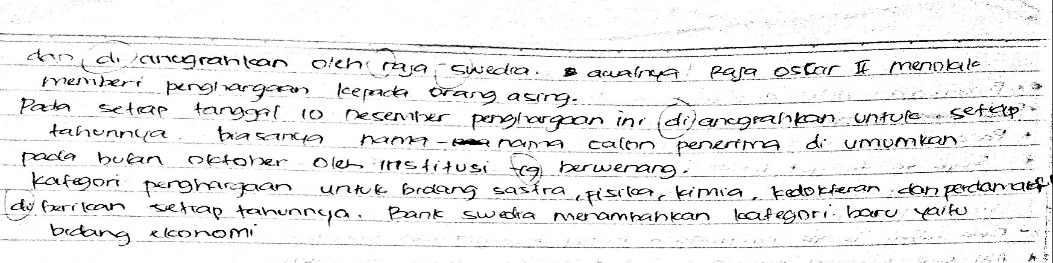 dan di anugrahkan oleh raja swedia. awalnya Raja Oscar II menolak
memberi penghargaan kepada orang asing.
Pada setiap tanggal 10 Desember penghargaan ini di anugrahkan untuk setiap
tahunnya biasanya nama-nama calon penerima di umumkan
pada bulan oktober oleh institusi yg berwenang.
Kategori penghargaan untuk bidang sastra, fisika, kimia, kedokteran dan perdamaian
di berikan setiap tahunnya. Bank swedia menambahkan kategori baru yaitu
bidang ekonomi